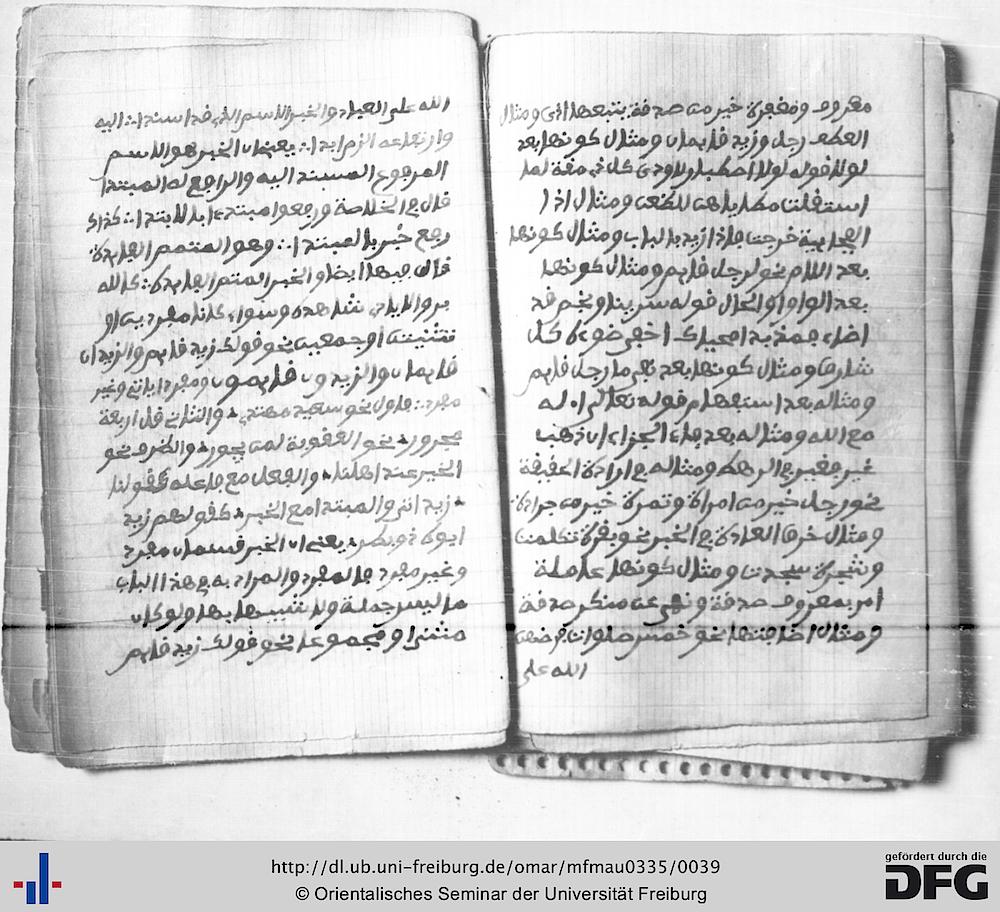 معروف ومغفرة خير من صدقة يتبعها اذى ومثال
العطف رجل وزيد قايمان ومثال كونها بعد
لولا قوله لولا اصطبار لاودى كل ذي مقة لما
استقلت مطاياهن للظعن ومثال اذا
الفجاىية خرجت فاذا زيد بالباب ومثال كونها
بعد اللام نحو لرجل قايم ومثال كونها
بعد الواو او الحال قوله سرينا ونجم قد
اضاء فمذ بدا محياك اخفى ضوءه كل
شارق ومثال كونها بعد نفي ما رجل قايم
ومثاله بعد استفهام قوله تعالى اءله
مع الله ومثاله بعد فاء الجزاء ان ذهب
عير فعير في الرهط ومثاله في ارادة الحقيقة
نحو رجل خير من امراة وتمرة خير من جرادة
ومثال خرق العادة في الخبر نحو بقرة تكلمت
وشجرة سجدت ومثال كونها عاملة
امر بمعروف صدقة ونهي عن منكر صدقة
ومثال اضافتها نحو خمس صلوات فرضهن
الله على
الله على العباد والخبر الاسم الذي قد اسندا ∴ اليه
وارتفاعه الزم ابدا ∴ يعني ان الخبر هو الاسم
المرفوع المسند اليه والراجع له المبتدا
قال في الخلاصة ورفعوا مبتدء بالابتدا ∴ كذاك
رفع خبر بالمبتدا ∴ وهو المتمم الفايدة
قال فيها ايضا والخبر المتم الفايدة ∴ كالله
بر والايادي شاهدة وسواء كانا مفردين او
تثنيتين او جمعين نحو قولك زيد قايم والزيدان
قايمان والزيدون قايمون ومفردا ياتي وغير
مفرد ∴ فاول نحو سعيد مهتدي ∴ والثاني قل اربعة
مجرور ∴ نحو العقوبة لمن يجور ∴ والظرف نحو
الخير عند اهلنا ∴ والفعل مع فاعله كقولنا
∴ زيد اتى والمبتدا مع الخبر ∴ كقولهم زيد
ابوه ذو بطر ∴ يعني ان الخبر قسمان مفرد
وغير مفرد فالمفرد والمراد به في هذا الباب
ما ليس جملة ولا شبيها بها ولو كان
مثنى او مجموعا نحو قولك زيد قايم
http://dl.ub.uni-freiburg.de/omar/mfmau0335/0039
© Orientalisches Seminar der Universität Freiburg
gefördert durch die
DFG